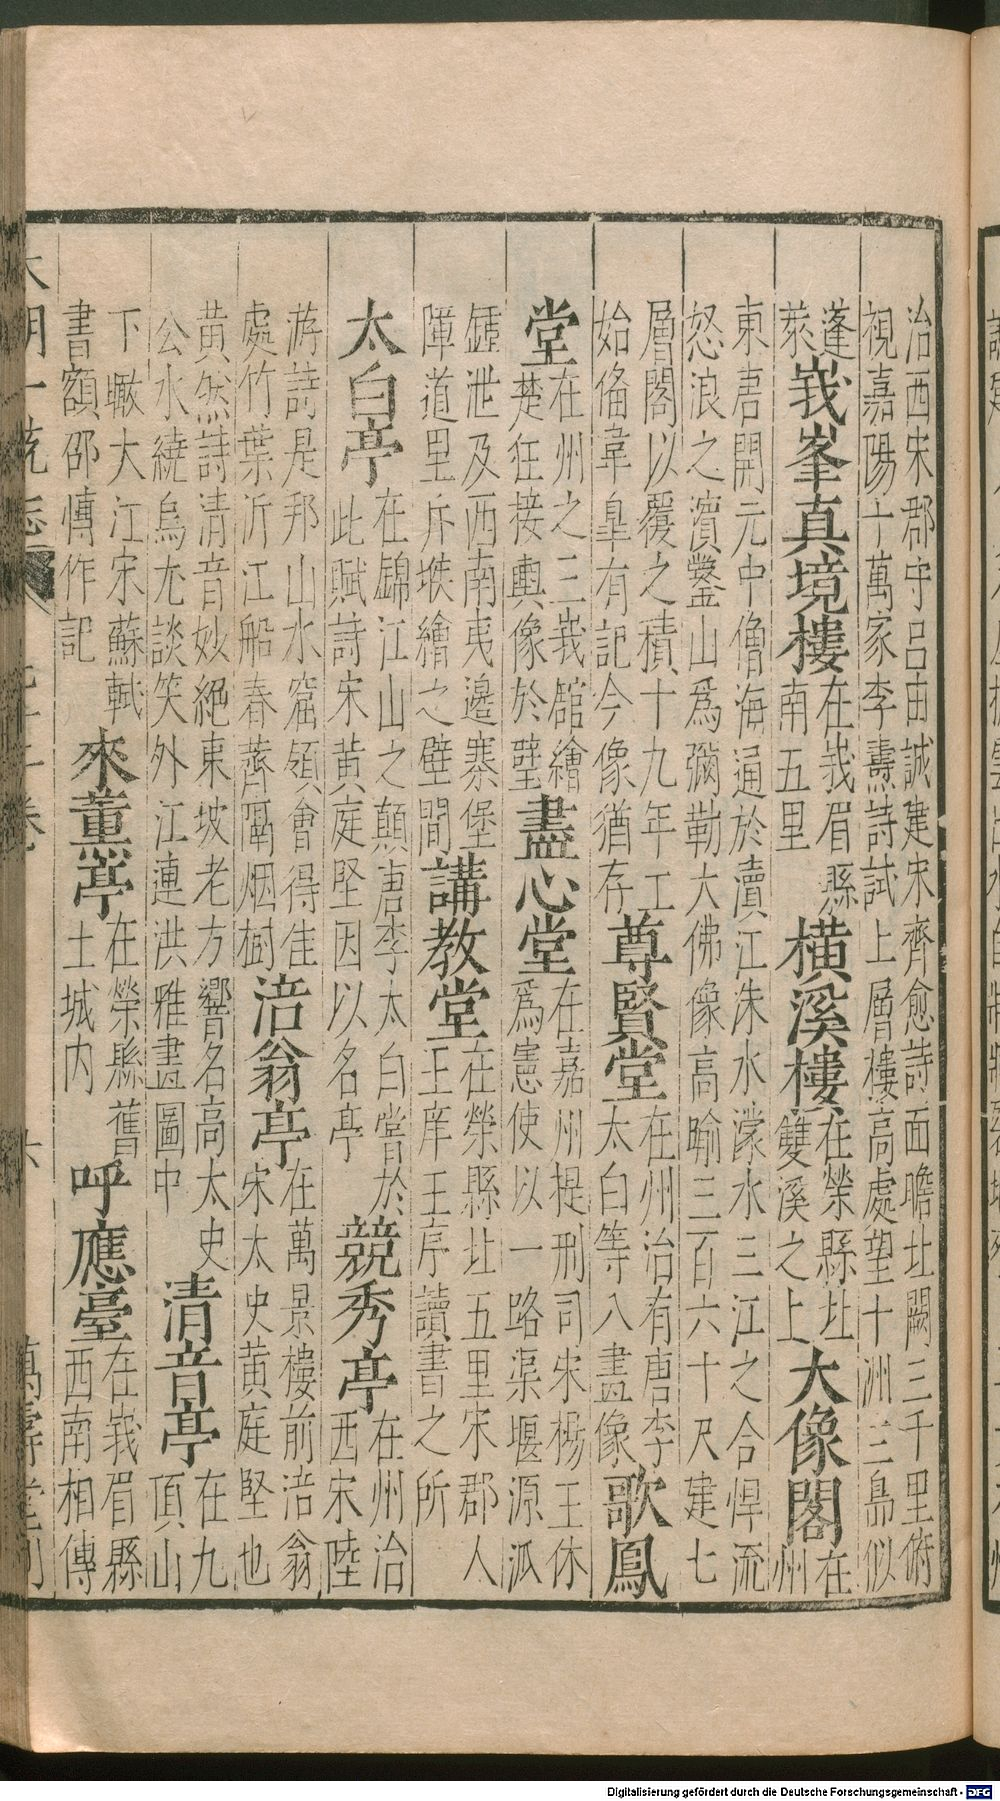 治西宋郡守呂由誠建宋齊愈詩面瞻北闕三千里俯
視嘉陽十萬家李燾詩試上層樓高處望十洲三島似
蓬
萊
峩峯真境樓
在峩眉縣
南五里
橫溪樓
在榮縣北
雙溪之上
大像閣
在
州
東唐開元中僧海通於瀆江沫水濛水三江之合悍流
怒浪之濱鑿山為彌勒大佛像高踰三百六十尺建七
層閣以覆之積十九年工
始俻韋臯有記今像猶存
尊賢堂
在州治有唐李
太白等八畫像
歌鳳
堂
在州之三峩館繪
楚狂接輿像於壁
盡心堂
在嘉州提刑司宋楊王休
為憲使以一路渠堰源流
鍾泄及西南夷邊寨堡
障道里斥堠繪之壁間
講教堂
在榮縣北五里宋郡人
王庠王序讀書之所
太白亭
在錦江山之顛唐李太白嘗於
此賦詩宋黃庭堅因以名亭
競秀亭
在州治
西宋陸
游詩是邦山水窟領會得佳
處竹葉沂江船春薺隔烟樹
涪翁亭
在萬景樓前涪翁
宋太史黃庭堅也
黃然詩清音妙絕東坡老方響名高太史
公水繞烏尤談笑外江連洪雅畫圖中
清音亭
在九
頂山
下瞰大江宋蘇軾
書額邵慱作記
來薰亭
在榮縣舊
土城內
呼應臺
在峩眉縣
西南相傳
Digitalisierung gefördert durch die Deutsche Forschungsgemeinschaft - DFG